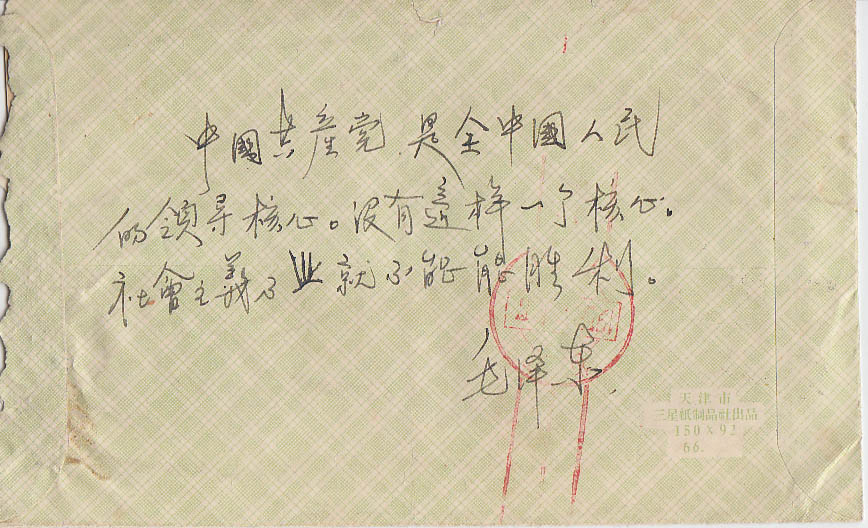 中國共產党是全中國人民
的領导核心。没有這样一个核心.
社會主義 业就不能 能胜利。
毛泽东.
天津市
三星紙制品社出品
150×92
66.